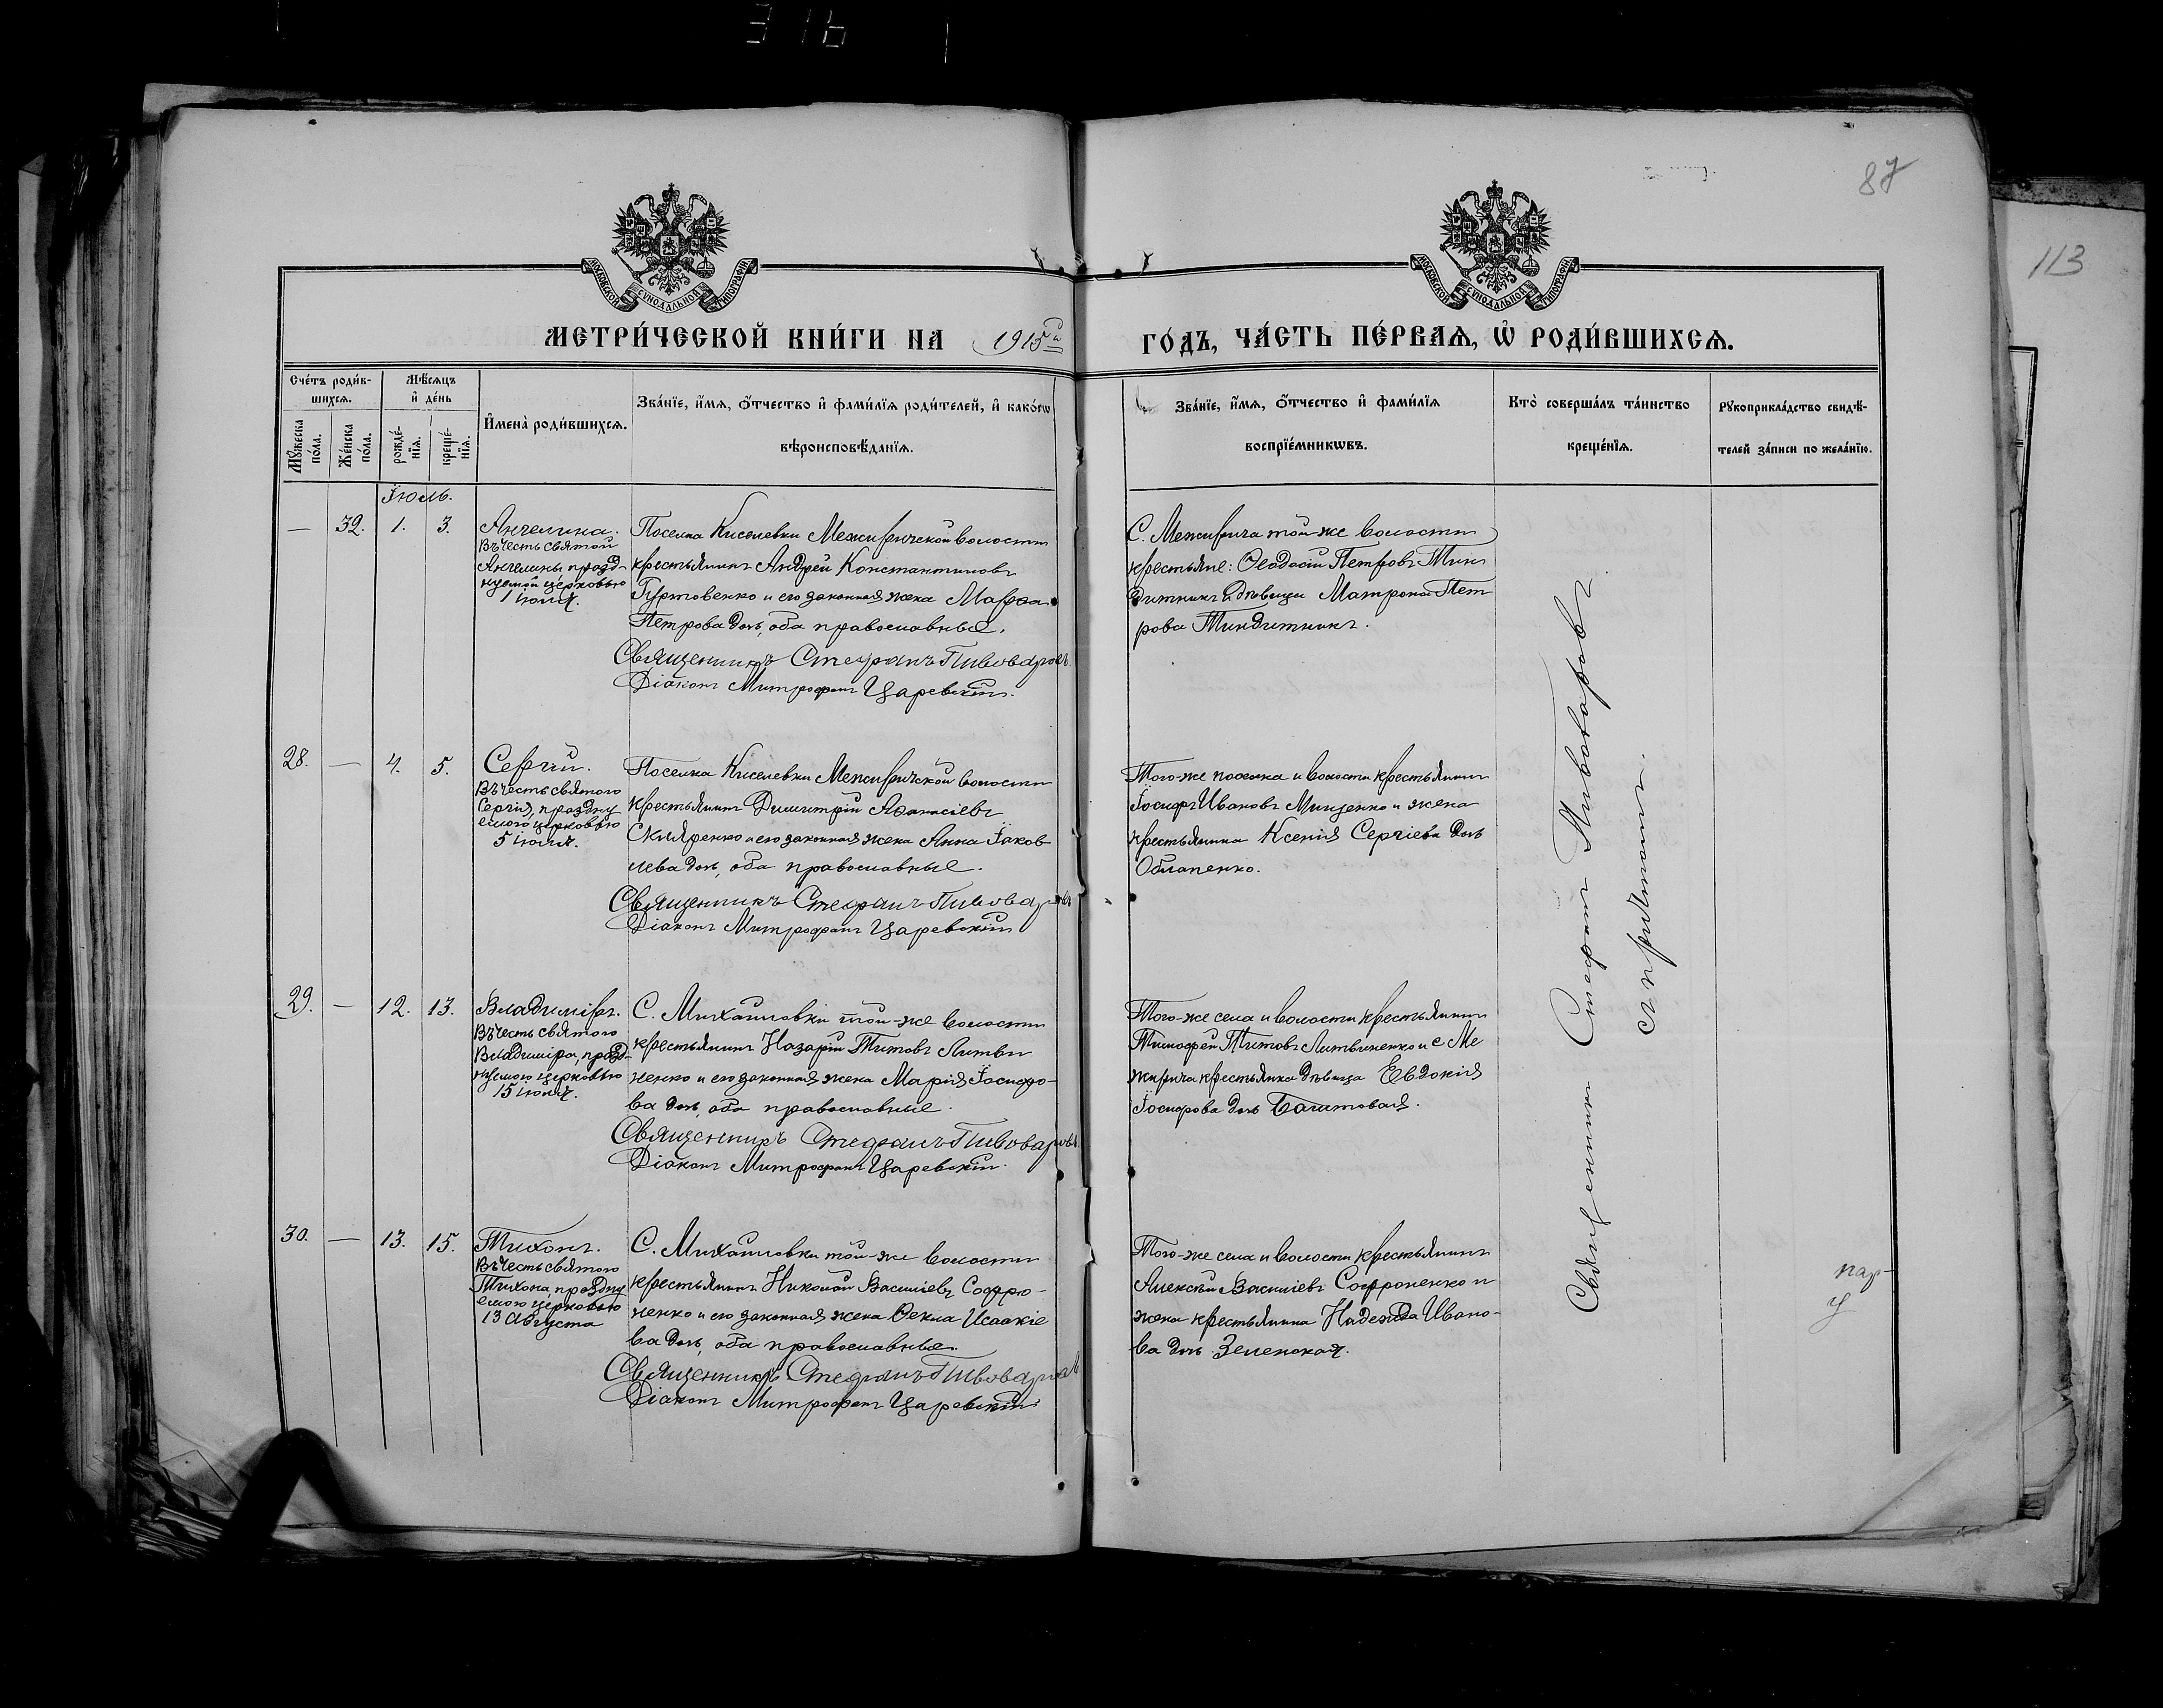 87
113
МОСКОВСКОЙ СѴНОДАЛЬНОЙ ТИПОГРАФІИ
МОСКОВСКОЙ СѴНОДАЛЬНОЙ ТИПОГРАФІИ
МЕТРИ́ЧЕСКОЙ КНИ́ГИ НА 1915й ГО́ДЪ, ЧА́СТЬ ПЕ́РВАѦ, Ѿ РОДИ́ВШИХСѦ.
Сче́тъ роди́в-
шихсѧ.
Мѣ́сѧцъ
и҆ де́нь
Мꙋ́жеска
по́ла.
Же́нска
по́ла.
рожде́-
нїѧ.
креще́-
нїѧ.
И҆мена̀ роди́вшихсѧ.
Зва́нїе, и҆́мѧ, ѻ҆́тчество и҆ фами́лїѧ роди́телей, и҆ како́гѡ
вѣроисповѣ́данїѧ.
Зва́нїе, и҆́мѧ, ѻ҆́тчество и҆ фами́лїѧ
воспрїе́мникѡвъ.
Кто̀ соверша́лъ та́инство
креще́нїѧ.
Рꙋкоприкла́дство свидѣ́-
телей за́писи по жела́нїю.
Іюль.
— 32. 1. 3.
Ангелина.
Въ честь святой
Ангелины празд-
нуемой церковью
1 июля.
Поселка Киселевки Межиричской волости
крестьянинъ Андрей Константиновъ
Гуртовенко и его законная жена Марѳа
Петрова дочь, оба православные.
Священникъ Стефанъ Пивоваровъ.
Діаконъ Митрофанъ Царевскій.
С. Межирича той-же волости
крестьяне: Ѳеодосій Петровъ
и дѣвица Матрона Пет
рова
28. — 4. 5.
Сергій.
Въ честь святого
Сергія, праздну
емого церковью
5 июля.
Поселка Киселевки Межиричской волости
крестьянинъ Димитрій Аѳанасіевъ
Скляренко и его законная жена Анна Іаков
лева дочь, оба православные.
Священникъ Стефанъ Пивоваровъ
Діаконъ Митрофанъ Царевскій
Того-же поселка и волости крестьянинъ
Іосифъ Ивановъ Мищенко и жена
крестьянина Ксенія Сергіева дочь
Облапенко.
29. — 12. 13.
Владиміръ.
Въ честь святого
Владиміра, празд-
нуемого церковью
15 июля.
С. Михайловки той-же волости
крестьянинъ Назарій Титовъ Литви
ненко и его законная жена Марія Іосифо-
ва дочь, оба православные.
Священникъ Стефанъ Пивоваровъ.
Діаконъ Митрофанъ Царевскій.
Того-же села и волости крестьянинъ
Тимофей Титовъ Литвиненко и с Ме
жирича крестьянка дѣвица Евдокія
Іосифова дочь
30. — 13. 15.
Тихонъ.
Въ честь святого
Тихона, праздну
емого церковью
13 Августа
С. Михайловки той-же волости
крестьянинъ Николай Василіевъ Софро-
ненко и его законная жена Ѳекла Исаакіе
ва дочь, оба православные.
Священникъ Стефанъ Пивоваровъ
Діаконъ Митрофанъ Царевскій
Того-же села и волости крестьянинъ
Алексѣй Василіевъ Софроненко и
жена крестьянина Надежда Ивано-
ва дочь Зеленская.
Священникъ Стефанъ Пивоваровъ
съ причтомъ.